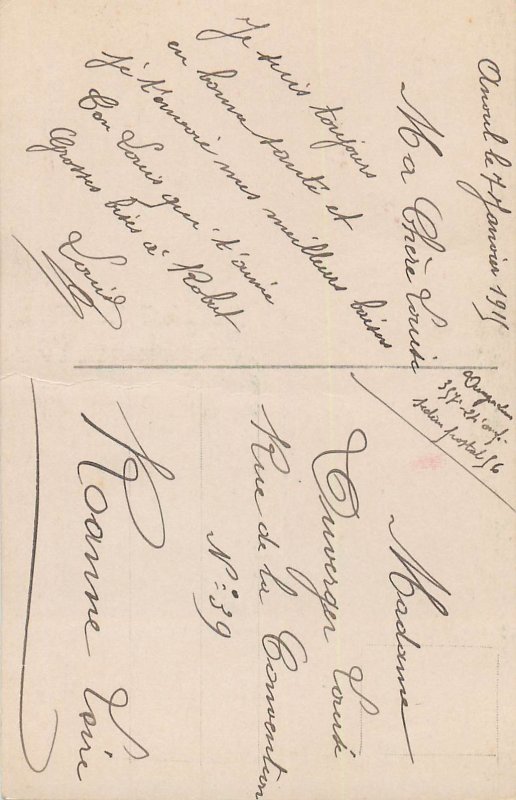 Anoul le 7 Janvier 1915
Ma Chère Louise
Je suis toujours
en bonne santé et
je t'envoie mes meilleurs baisers
Ton Louis qui t'aime
Grosses bises à Robert
Louis
357e
postal 156
Madame
Duverger Louise
Rue de la Convention
No: 39
Roanne Loire